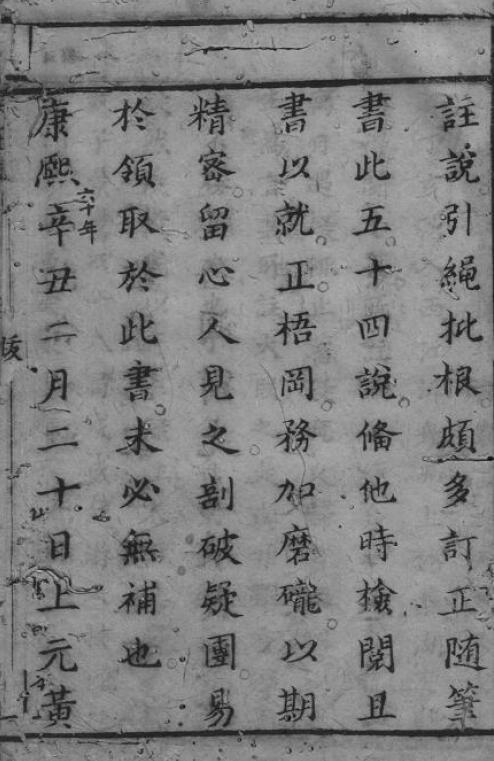 註說引繩批根頗多訂正随筆
書此五十四說俻他時撿閱且
書以就正梧岡務加磨礲以期
精審留心人見之剖破疑團易
於領取於此書未必無補也
康熈辛丑二月二十日上元黃
六十年